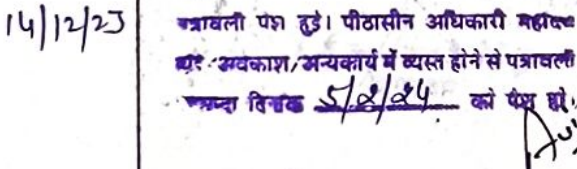 14/12/23 पत्रावली पेश हुई। पीठासीन अधिकारी महोदय
अवकाश/अन्यकार्य में व्यस्त होने से पत्रावली
दिनांक 5/2/24 को पेश हो।